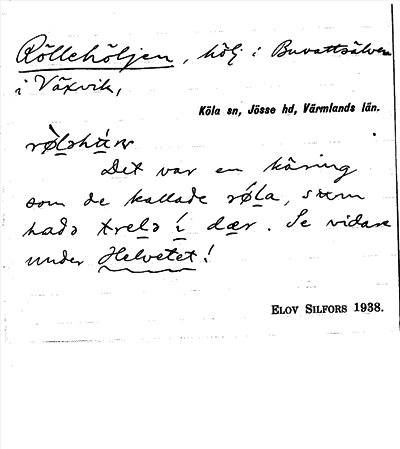 Röllehöljen, hölj i Buvattsälven
i Växvik,
Köla sn, Jösse hd, Värmlands län.
Det var en käring
som de kallade røla, som
hadə trelə i dær. Se vidare
under Helvetet!
ELOV SILFORS 1938.